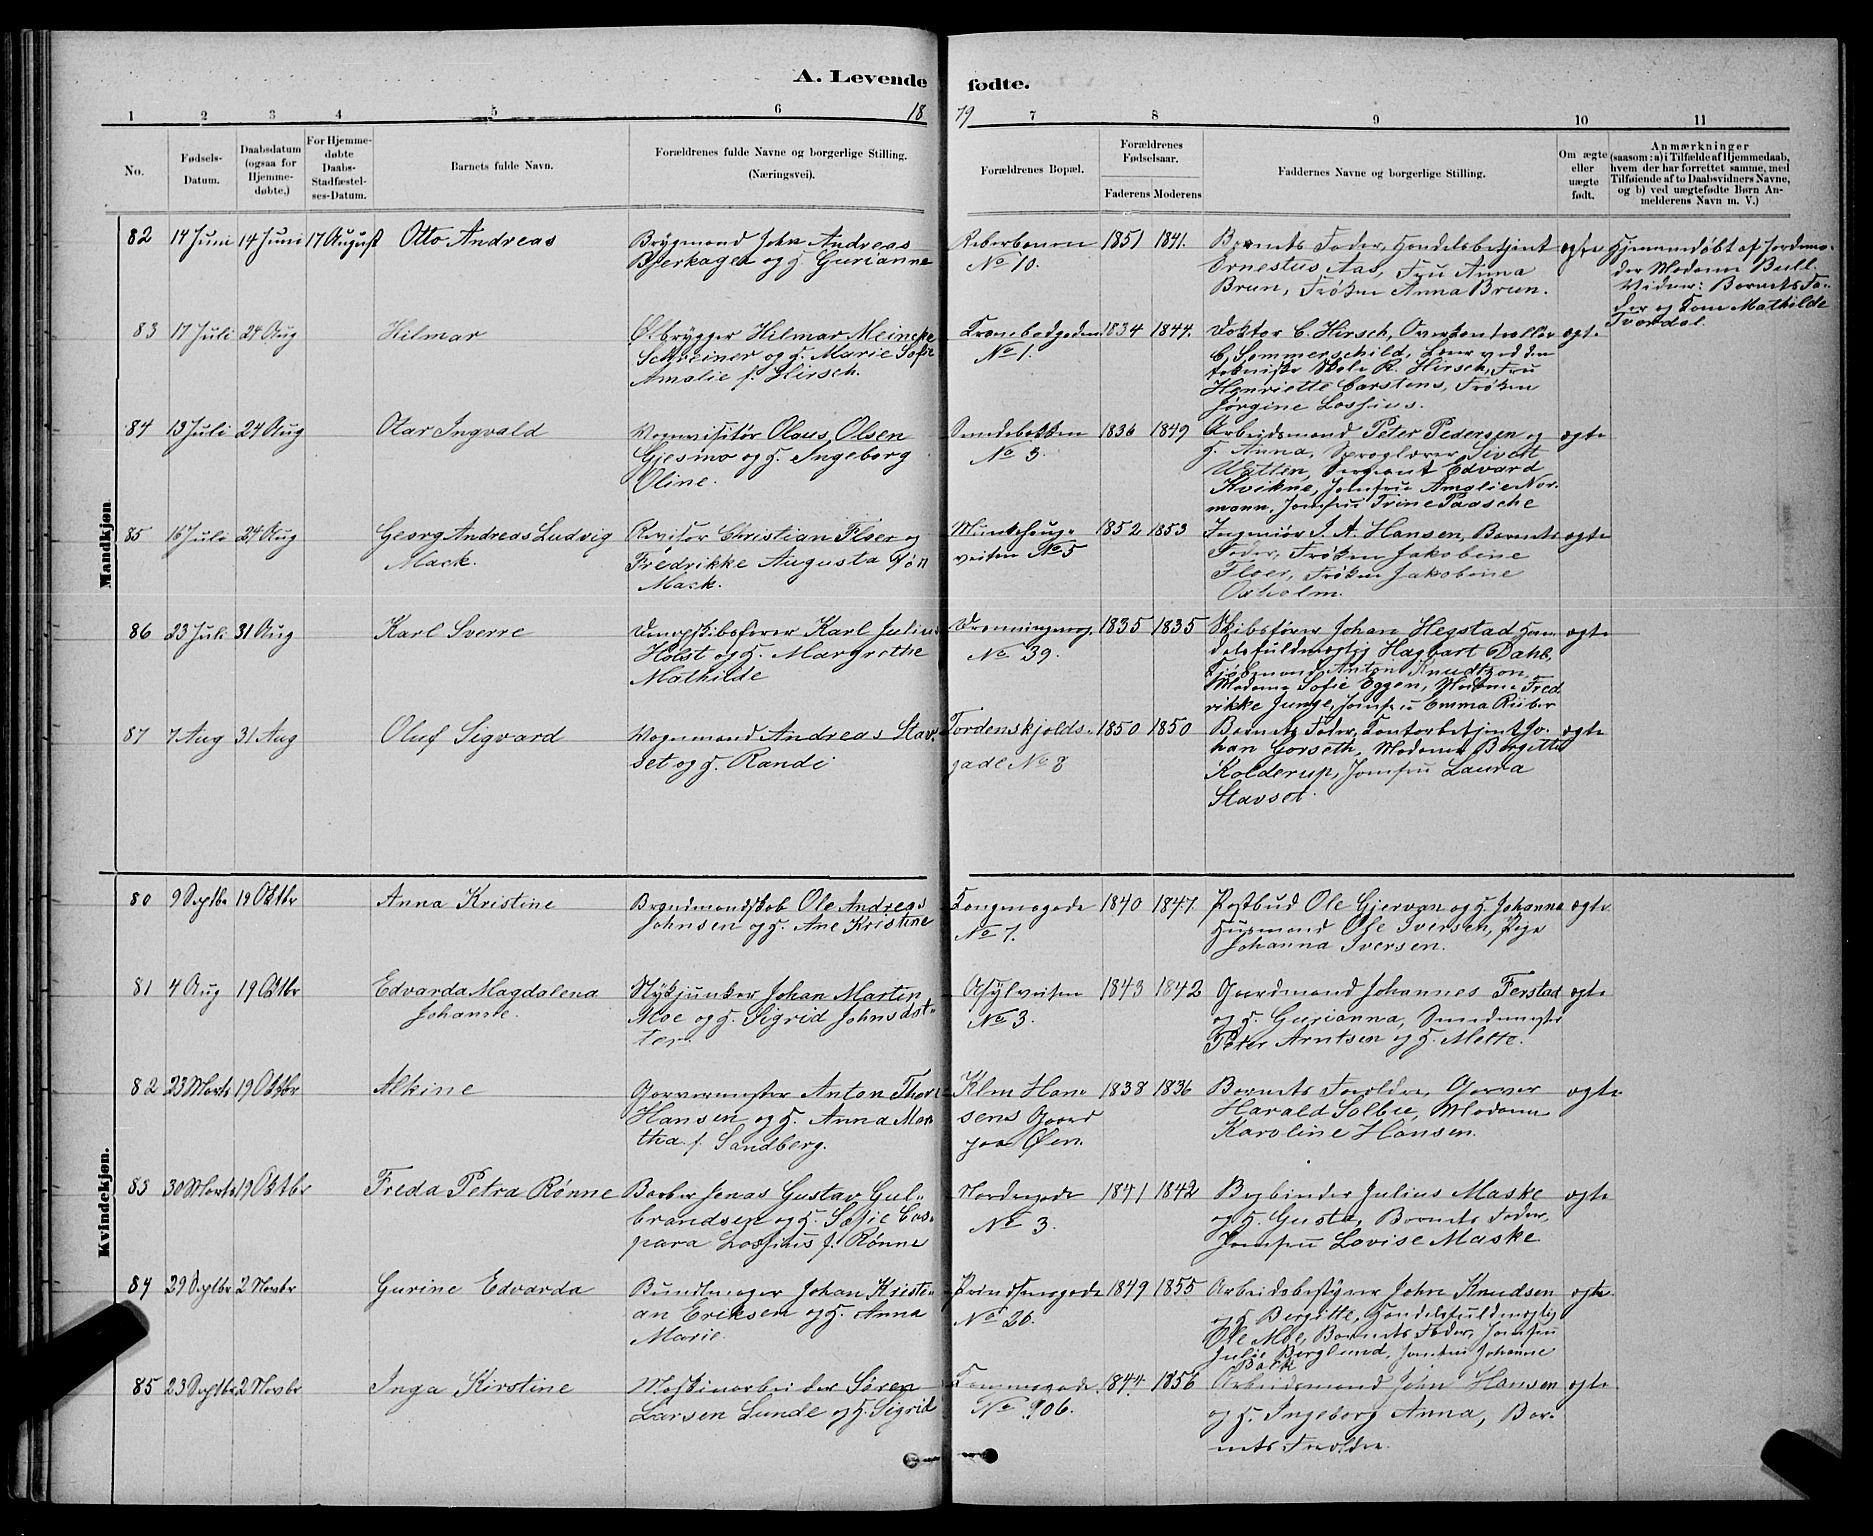 A. Levende fødte.
18 79
1 2 3 4 5 6 7 8 9 10 11
No.
Fødsels-
Datum.
Daabsdatum
(ogsaa for
Hjemme-
døbte.)
For Hjemme-
døbte
Daabs-
Stadfæstel-
ses-Datum.
Barnets fulde Navn.
Forældrenes fulde Navne og borgerlige Stilling.
(Næringsvei).
Forældrenes Bopæl.
Forældrenes
Fødselsaar.
Faderens Moderens
Faddernes Navne og borgerlige Stilling.
Om ægte
eller
uægte
født.
Anmærkninger
(saasom: a) i Tilfælde af Hjemmedaab,
hvem der har forrettet samme, med
Tilføiende af to Daabsvidners Navne,
og b) ved uægtefødte Børn An-
melderens Navn m. V.)
Mandkjøn
82 14 Juni 14 Juni 17 August
Otto Andreas
Brygmand John Andreas
Bjerkager og H. Gurianne
Reberbanen
No 10.
1851 1841.
Barnets Fader, Handelsbetjent
Ernestus Aas, Fru Anna
Brun, Frøken Anna Brun.
ægte
Hjemmedøbt af Jordemo-
der Madame Bull.
Vidner: Barnets Fa-
der og Mathilde
Tverdal.
83 17 Juli 24 Aug
Hilmar
Ølbrygger Hilmar Meincke
Schreiner og H. Marie Sofie
Amalie f. Hirsch.
No 1.
1834 1844.
Doktor C. Hirsch, Overkontrollør
C. Sommerschild, Lærer ved den
tekniske Skole R. Hirsch, Fru
Henriette Carstens, Frøken
Jørgine Lossius.
ægte
84 13 Juli 24 Aug
Olar Ingvald
Vognvisitør Olaus Olsen
Gjesmo og H. Ingeborg
Oline.
Sandebakken
No 3.
1836 1849
Arbeidsmand Peter Pedersen og
H. Anna, Sproglærer Sivert
Sergeant Edvard
Kvikne, Jomfru Amalie Nor-
mann, Jomfru Trine Paasche
ægte
85 16 Juli 24 Aug
Georg Andreas Ludvig
Mack.
Revisor Christian Fløer og
Fredrikke Augusta
Mack.
Munkehaug-
veiten No 5
1852 1853
Ingeniør J. A. Hansen, Barnets
Fader, Frøken Jakobine
Floer, Frøken Jakobine
Oxholm.
ægte
86 23 Juli 31 Aug
Karl Sverre
Dampskibsfører Karl Julius
Holst og H. Margrethe
Mathilde
Dronningensg.
No 39.
1835 1835
Skibsfører Johan Hegstad Han-
delsfuldmægtig Hagbart Dahl,
Kjøbmand Anton Knudtzon,
Madame Sofie Eggen, Madame Fred-
rikke Junge, Jomfru Emma Riiber
ægte
87 7 Aug 31 Aug
Oluf Sigvard
Vognmand Andreas Stav-
set og H. Randi
Tordenskjolds-
gade No 8
1850 1850
Barnets Fader, Kontorbetjent Jo-
han Gorseth, Madame Bergitte
Kolderup, Jomfru Laura
Stavset.
ægte
Kvindekjøn.
80 9 Septbr 19 Oktbr
Anna Kristine
Brandmandskab Ole Andreas
Johnsen og H. Ane Kristine
Kongensgade
No 7.
1840 1847.
Postbud Ole Gjervan og H. Johanna
Husmand Ole Iversen, Pige
Johanna Iversen.
ægte
81 4 Aug 19 Oktbr
Edvarda Magdalena
Johanne.
Stykjunker Johan Martin
Moe og H. Sigrid Johnsdat-
ter.
Asylveiten
No 3.
1843 1842
Gaardmand Johannes Ferstad
og H. Gurianna,
Peter Arntsen og H. Mette.
ægte
82 23 Marts 19 Oktbr
Alkine
Garvermester Anton Thor
Hansen og H. Anna Mar-
tha f. Sandberg.
Klm Han-
sens Gaard
paa Øen.
1838 1836
Barnets Forældre, Garver
Harald Solbu, Madame
Karoline Hansen.
ægte
83 30 Marts 19 Oktbr
Freda Petra Rønne
Barber Jonas Gustav Gul-
brandsen og H. Sofie Cas-
para Lossius f. Rønne
Nordregade
No 3.
1841 1842
Bogbinder Julius Maske
og H. Gusta, Barnets Fader,
Jomfru Lovise Maske.
ægte
84 29 Septbr 2 Novbr
Gurine Edvarda
Bundtmager Johan Kristi-
an Eriksen og H. Anna
Marie.
Prindsensgade
No 26.
1849 1855
Arbeidsbestyrer John Knudsen
og H. Bergitte, Handelsfuldmægtig
Ole Moe, Barnets Fader, Jomfru
Julie Berglund, Jomfru Johanne
Balk
ægte
85 23 Septbr 2 Novbr
Inga Kirstine
Maskinarbeider Søren
Larsen Lunde og H. Sigrid
No 906.
1844 1856
Arbeidsmand John Hansen
og H. Ingeborg Anna, Bar-
nets Forældre.
ægte